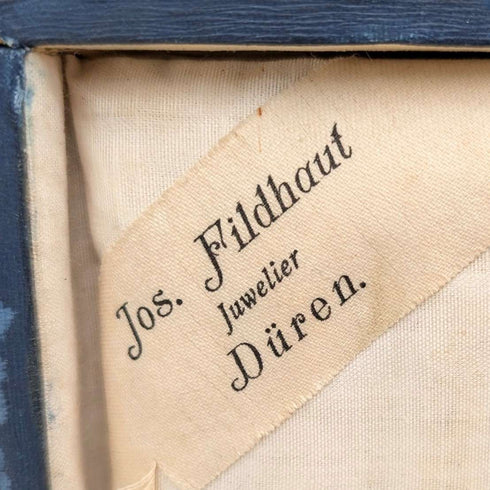 Jos. Fildhaut
Juwelier
Düren.